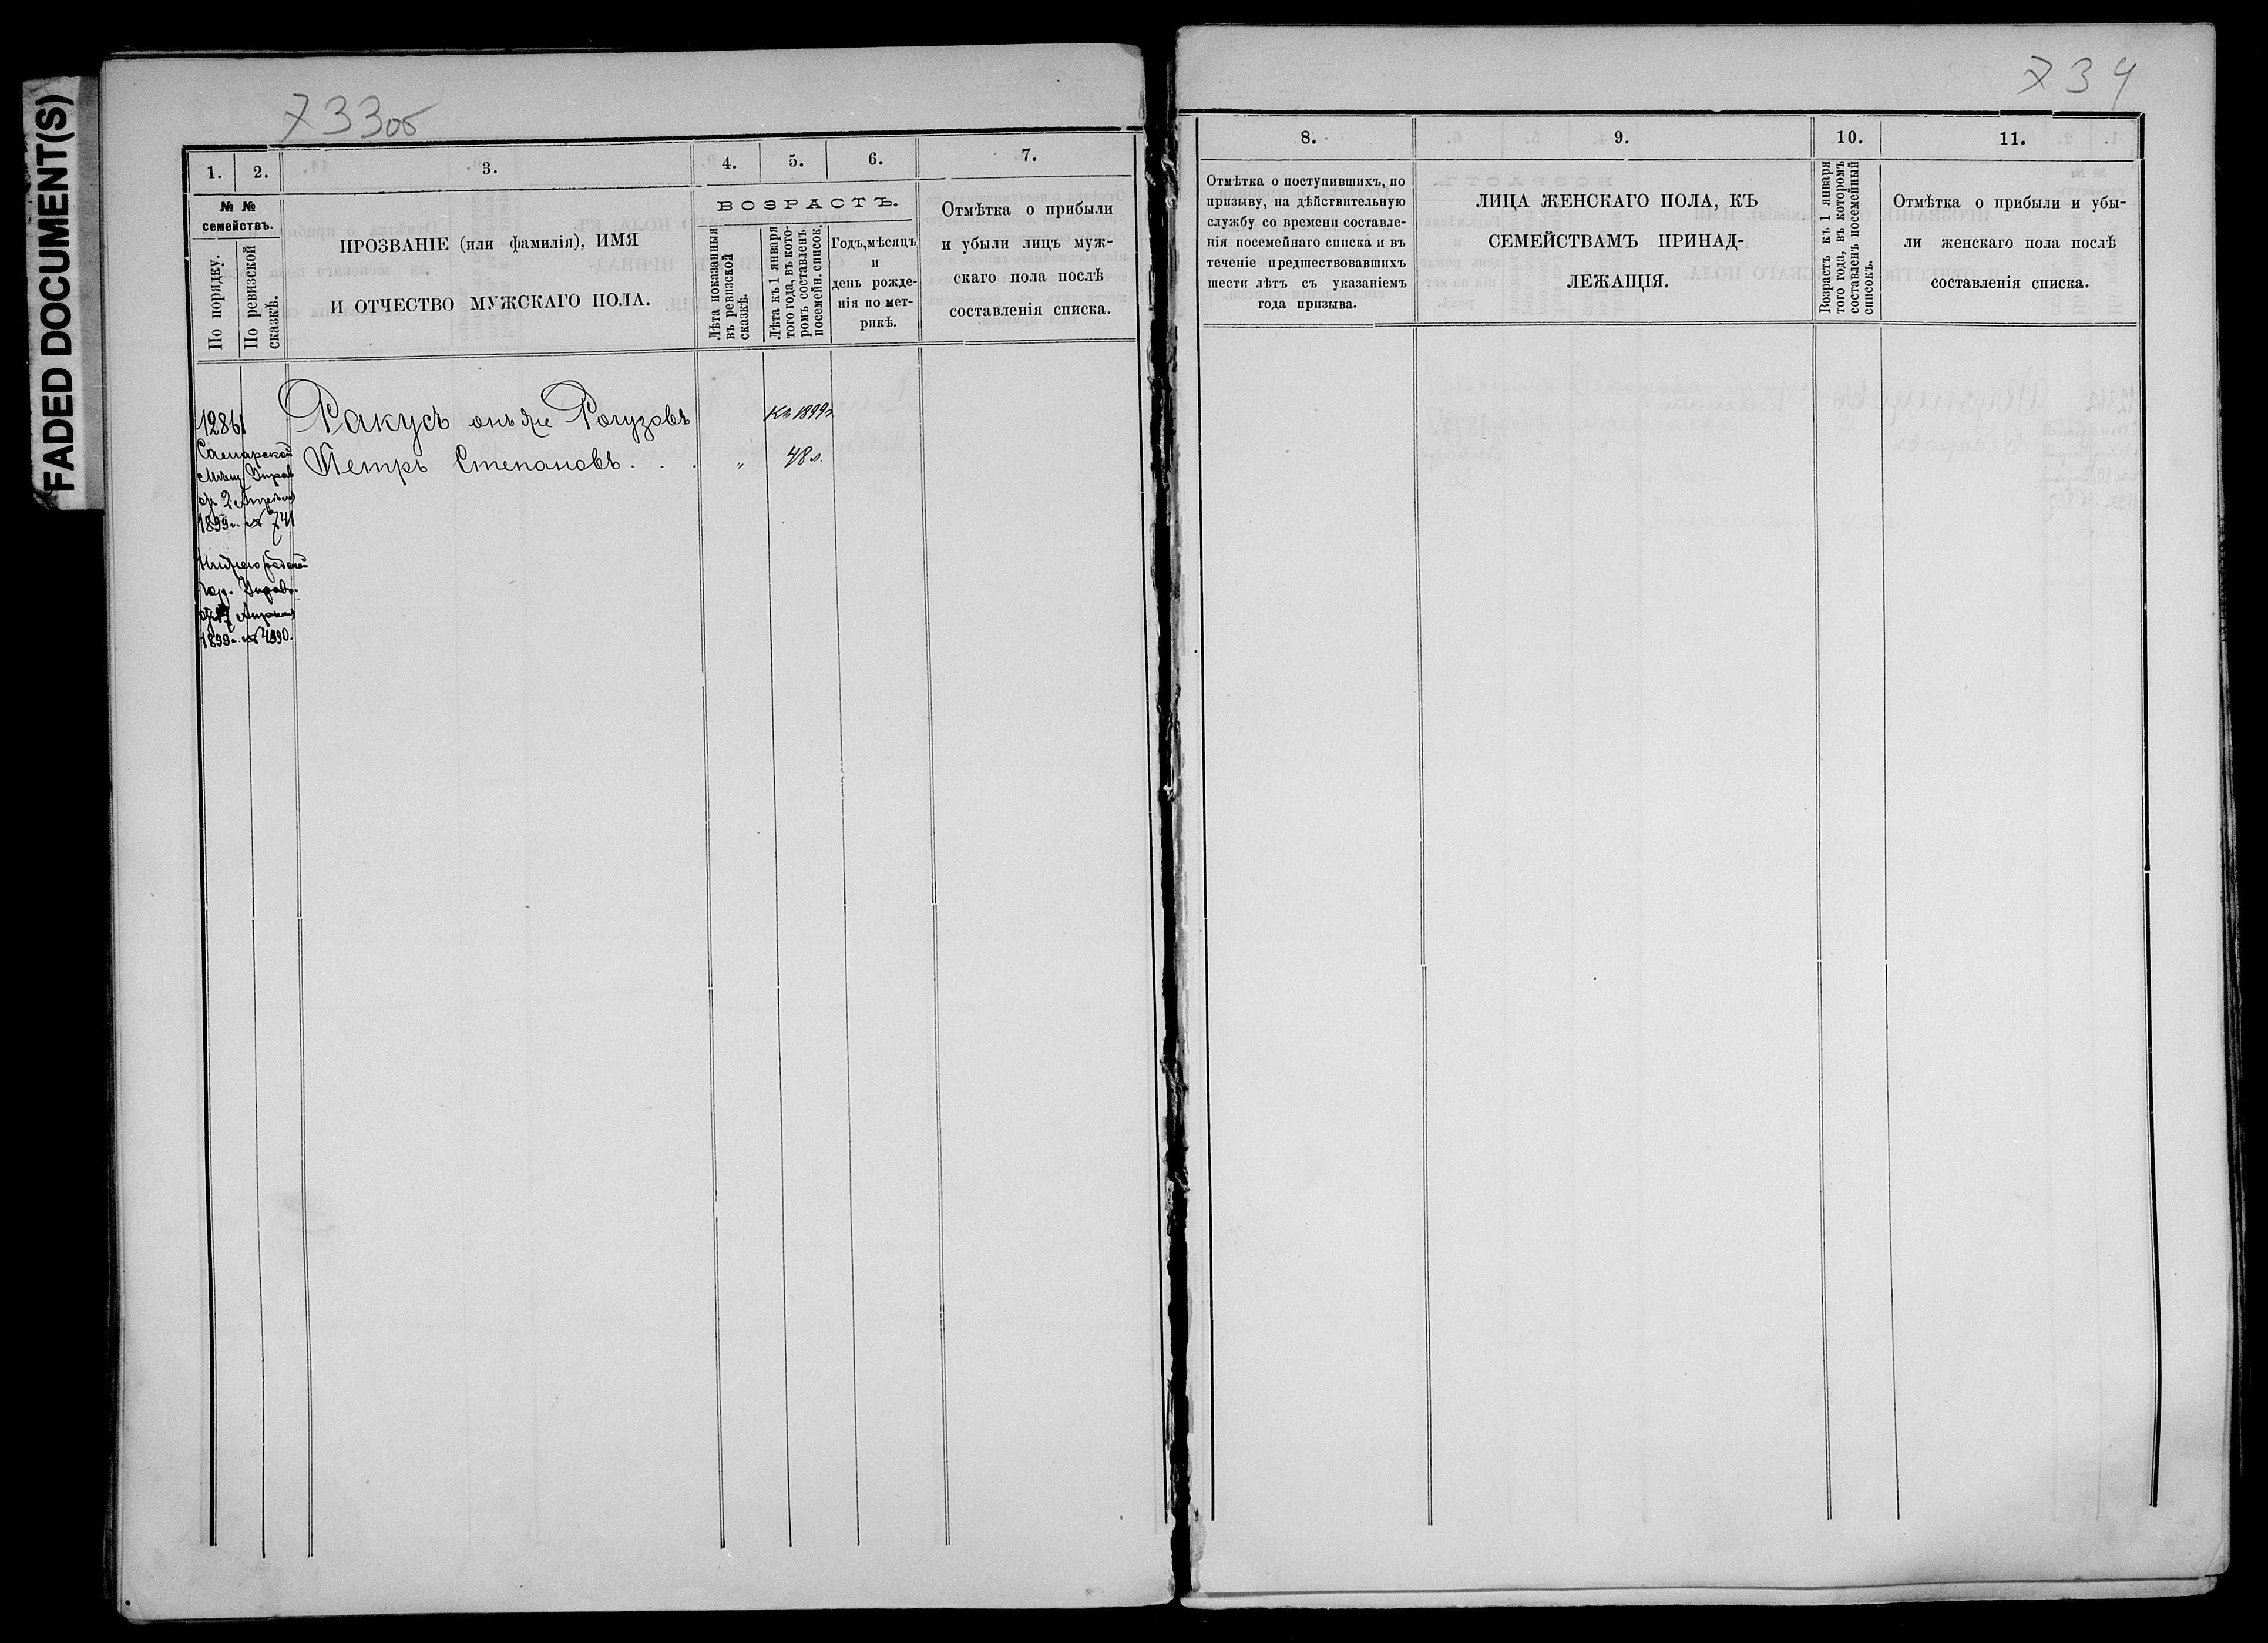 FADED DOCUMENT(S)
733об
734
1.
2.
3.
4.
5.
6.
7.
№ №
семействъ.
По порядку.
По ревизской
сказкѣ.
ПРОЗВАНІЕ (или фамилія), ИМЯ
И ОТЧЕСТВО МУЖСКАГО ПОЛА.
ВОЗРАСТЪ.
Лѣта показанныя
въ ревизской
сказкѣ.
Лѣта къ 1 января
того года, въ кото-
ромъ составленъ
посемейн. список.
Годъ, мѣсяцъ
и
день рожде-
нія по мет-
рикѣ.
Отмѣтка о прибыли
и убыли лицъ муж-
скаго пола послѣ
составленія списка.
12861
Самарской
Мѣщ. Управ
от 2 Апрѣля
1899 г. № 741
Нижегородской
Гор. Управы
Апрѣля
1899 г. № 4990.
Ракусъ онъ же Рогузовъ
Къ 1899 г.
Петръ Степановъ . . .
„
48 л.
8.
9.
10.
11.
Отмѣтка о поступившихъ, по
призыву, на дѣйствительную
службу со времени составле-
нія посемейнаго списка и въ
теченіе предшествовавшихъ
шести лѣтъ съ указаніемъ
года призыва.
ЛИЦА ЖЕНСКАГО ПОЛА, КЪ
СЕМЕЙСТВАМЪ ПРИНАД-
ЛЕЖАЩІЯ.
Возрастъ къ 1 января
того года, въ которомъ
составленъ посемейный
списокъ.
Отмѣтка о прибыли и убы-
ли женскаго пола послѣ
составленія списка.